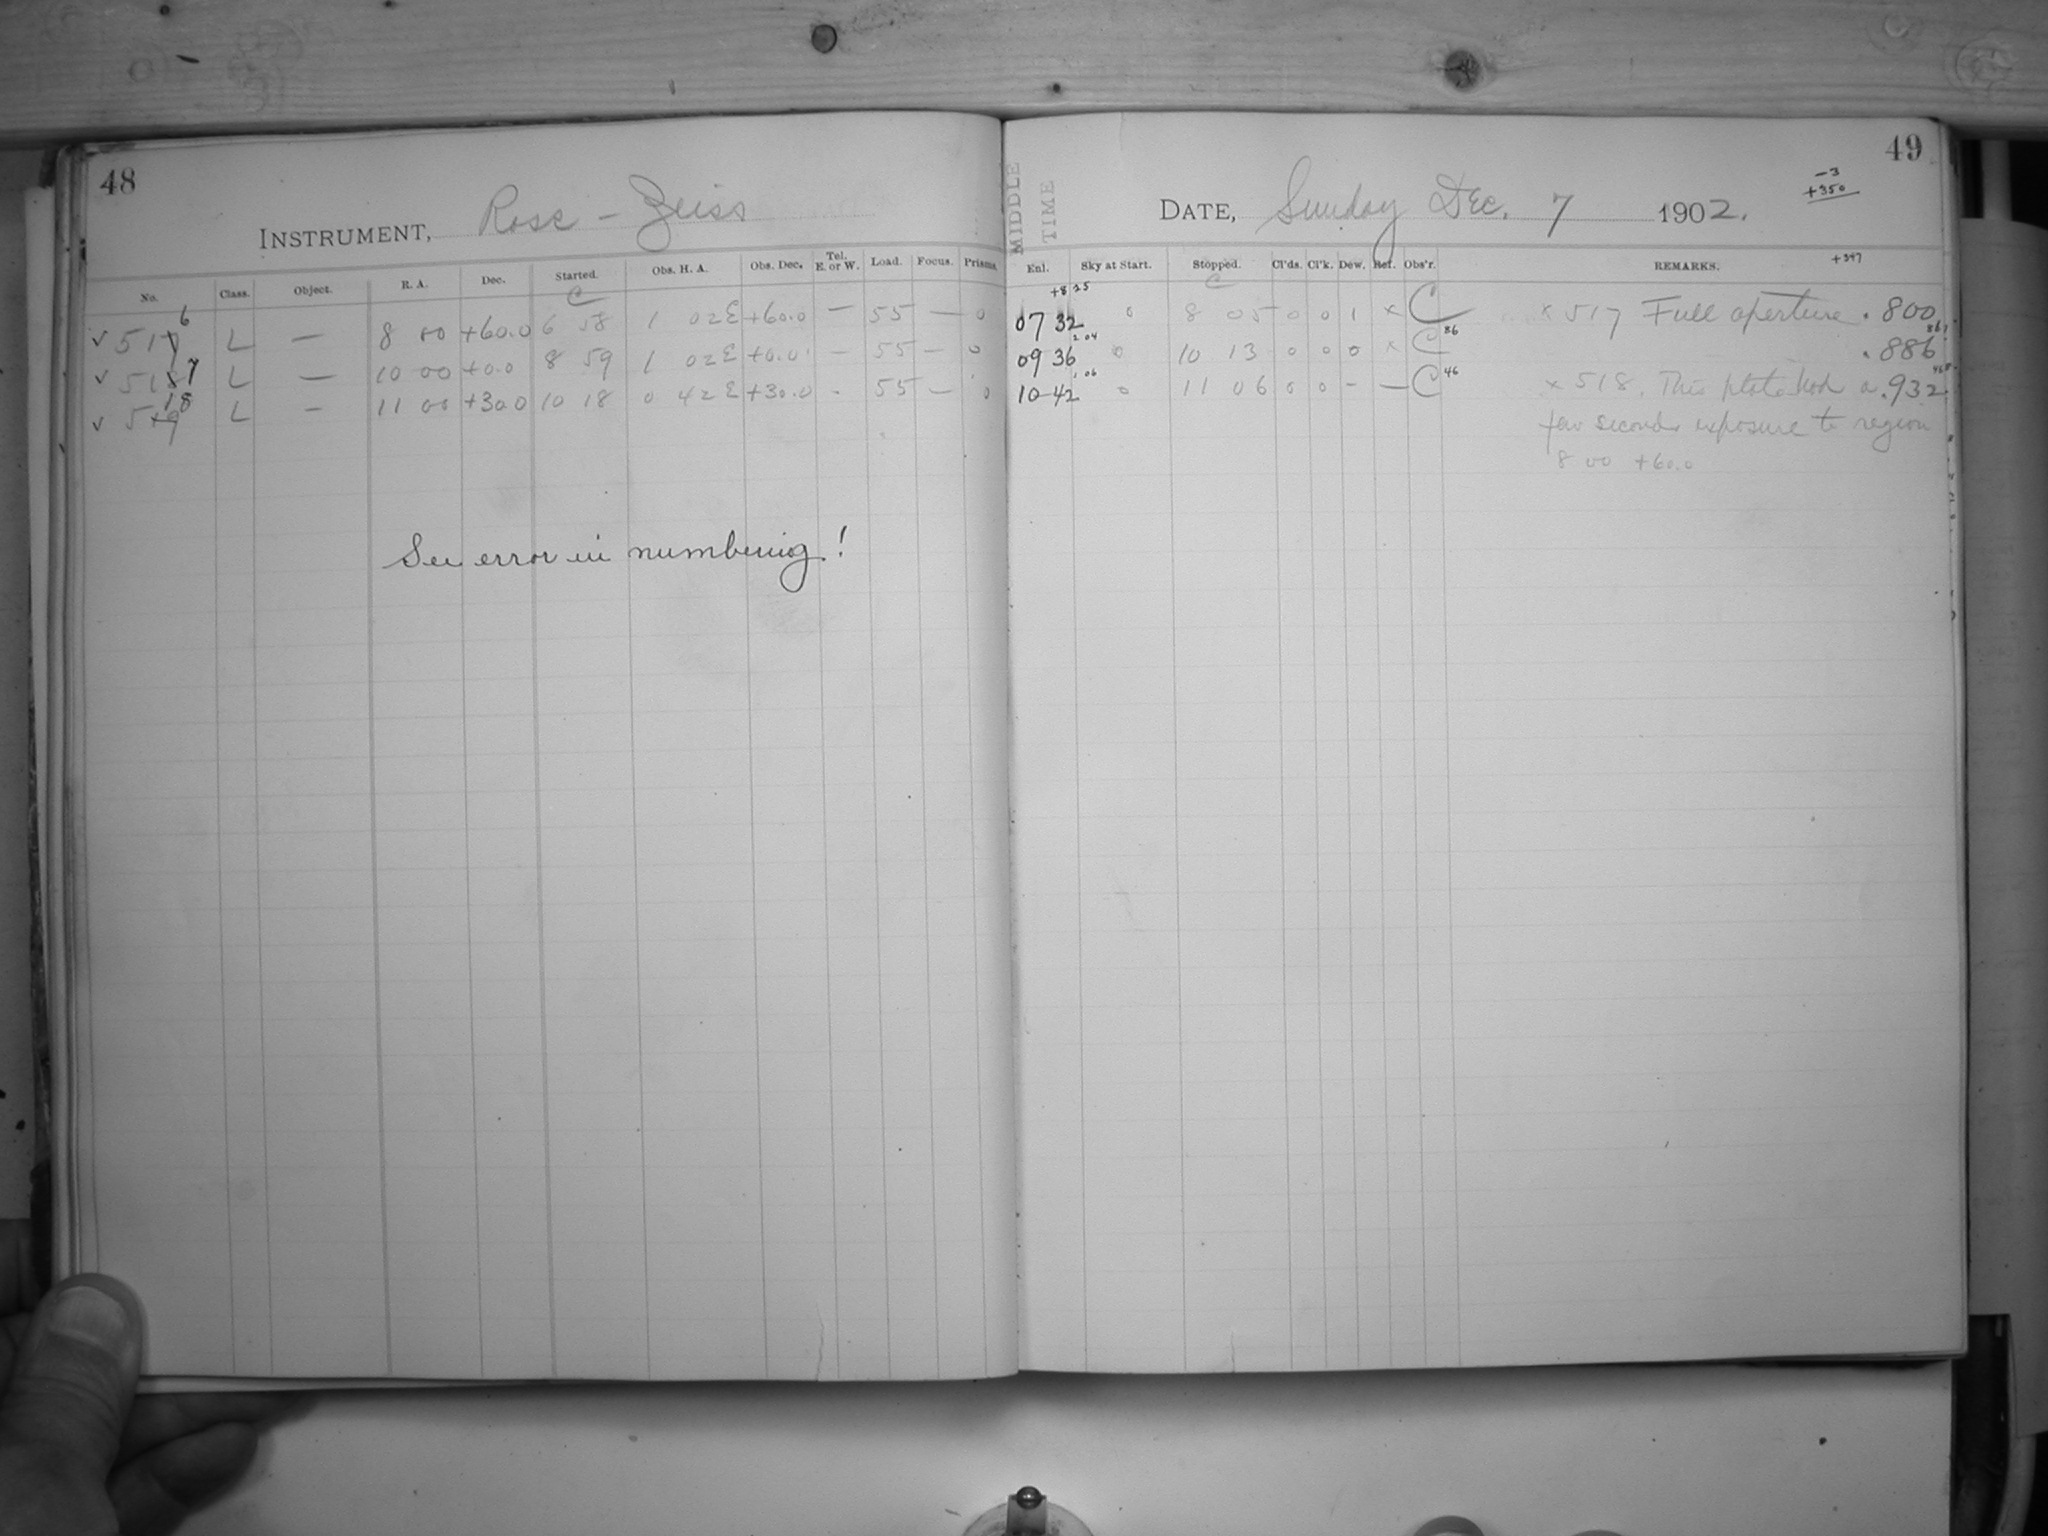 48
INSTRUMENT, Ross - Zeiss
No. Class. Object. R. A. Dec. Started. Obs. H. A. Obs. Dec. Tel. E. or W. Load. Focus. Prisms.
C
✓ 517 6 L — 8 00 +60.0 6 58 1 02E +60.0 — 55 — 0
✓ 518 7 L — 10 00 +0.0 8 59 1 02E +0.0 — 55 — 0
✓ 519 18 L — 11 00 +30.0 10 18 0 42E +30.0 - 55 — 0
See error in numbering!
49
MIDDLE TIME
DATE, Sunday Dec. 7 1902.
-3
+350
+347
Enl. Sky at Start. Stopped. Cl'ds. Cl'k. Dew. Ref. Obs'r. REMARKS.
+8 25 C
07 32 0 8 05 0 0 1 x C x 517 Full aperture .800
2 04 86
09 36 0 10 13 0 0 0 x C .886
1 06 46
10 42 0 11 06 0 0 - — C x 518. This plate had a .932
few seconds exposure to region
8 00 +60.0